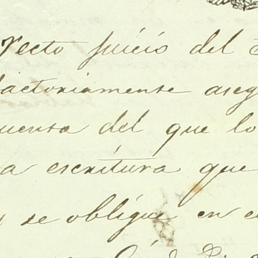 recto juicio del
factoriamente aseg
uenta del que lo
a escritura que
se obliga en e